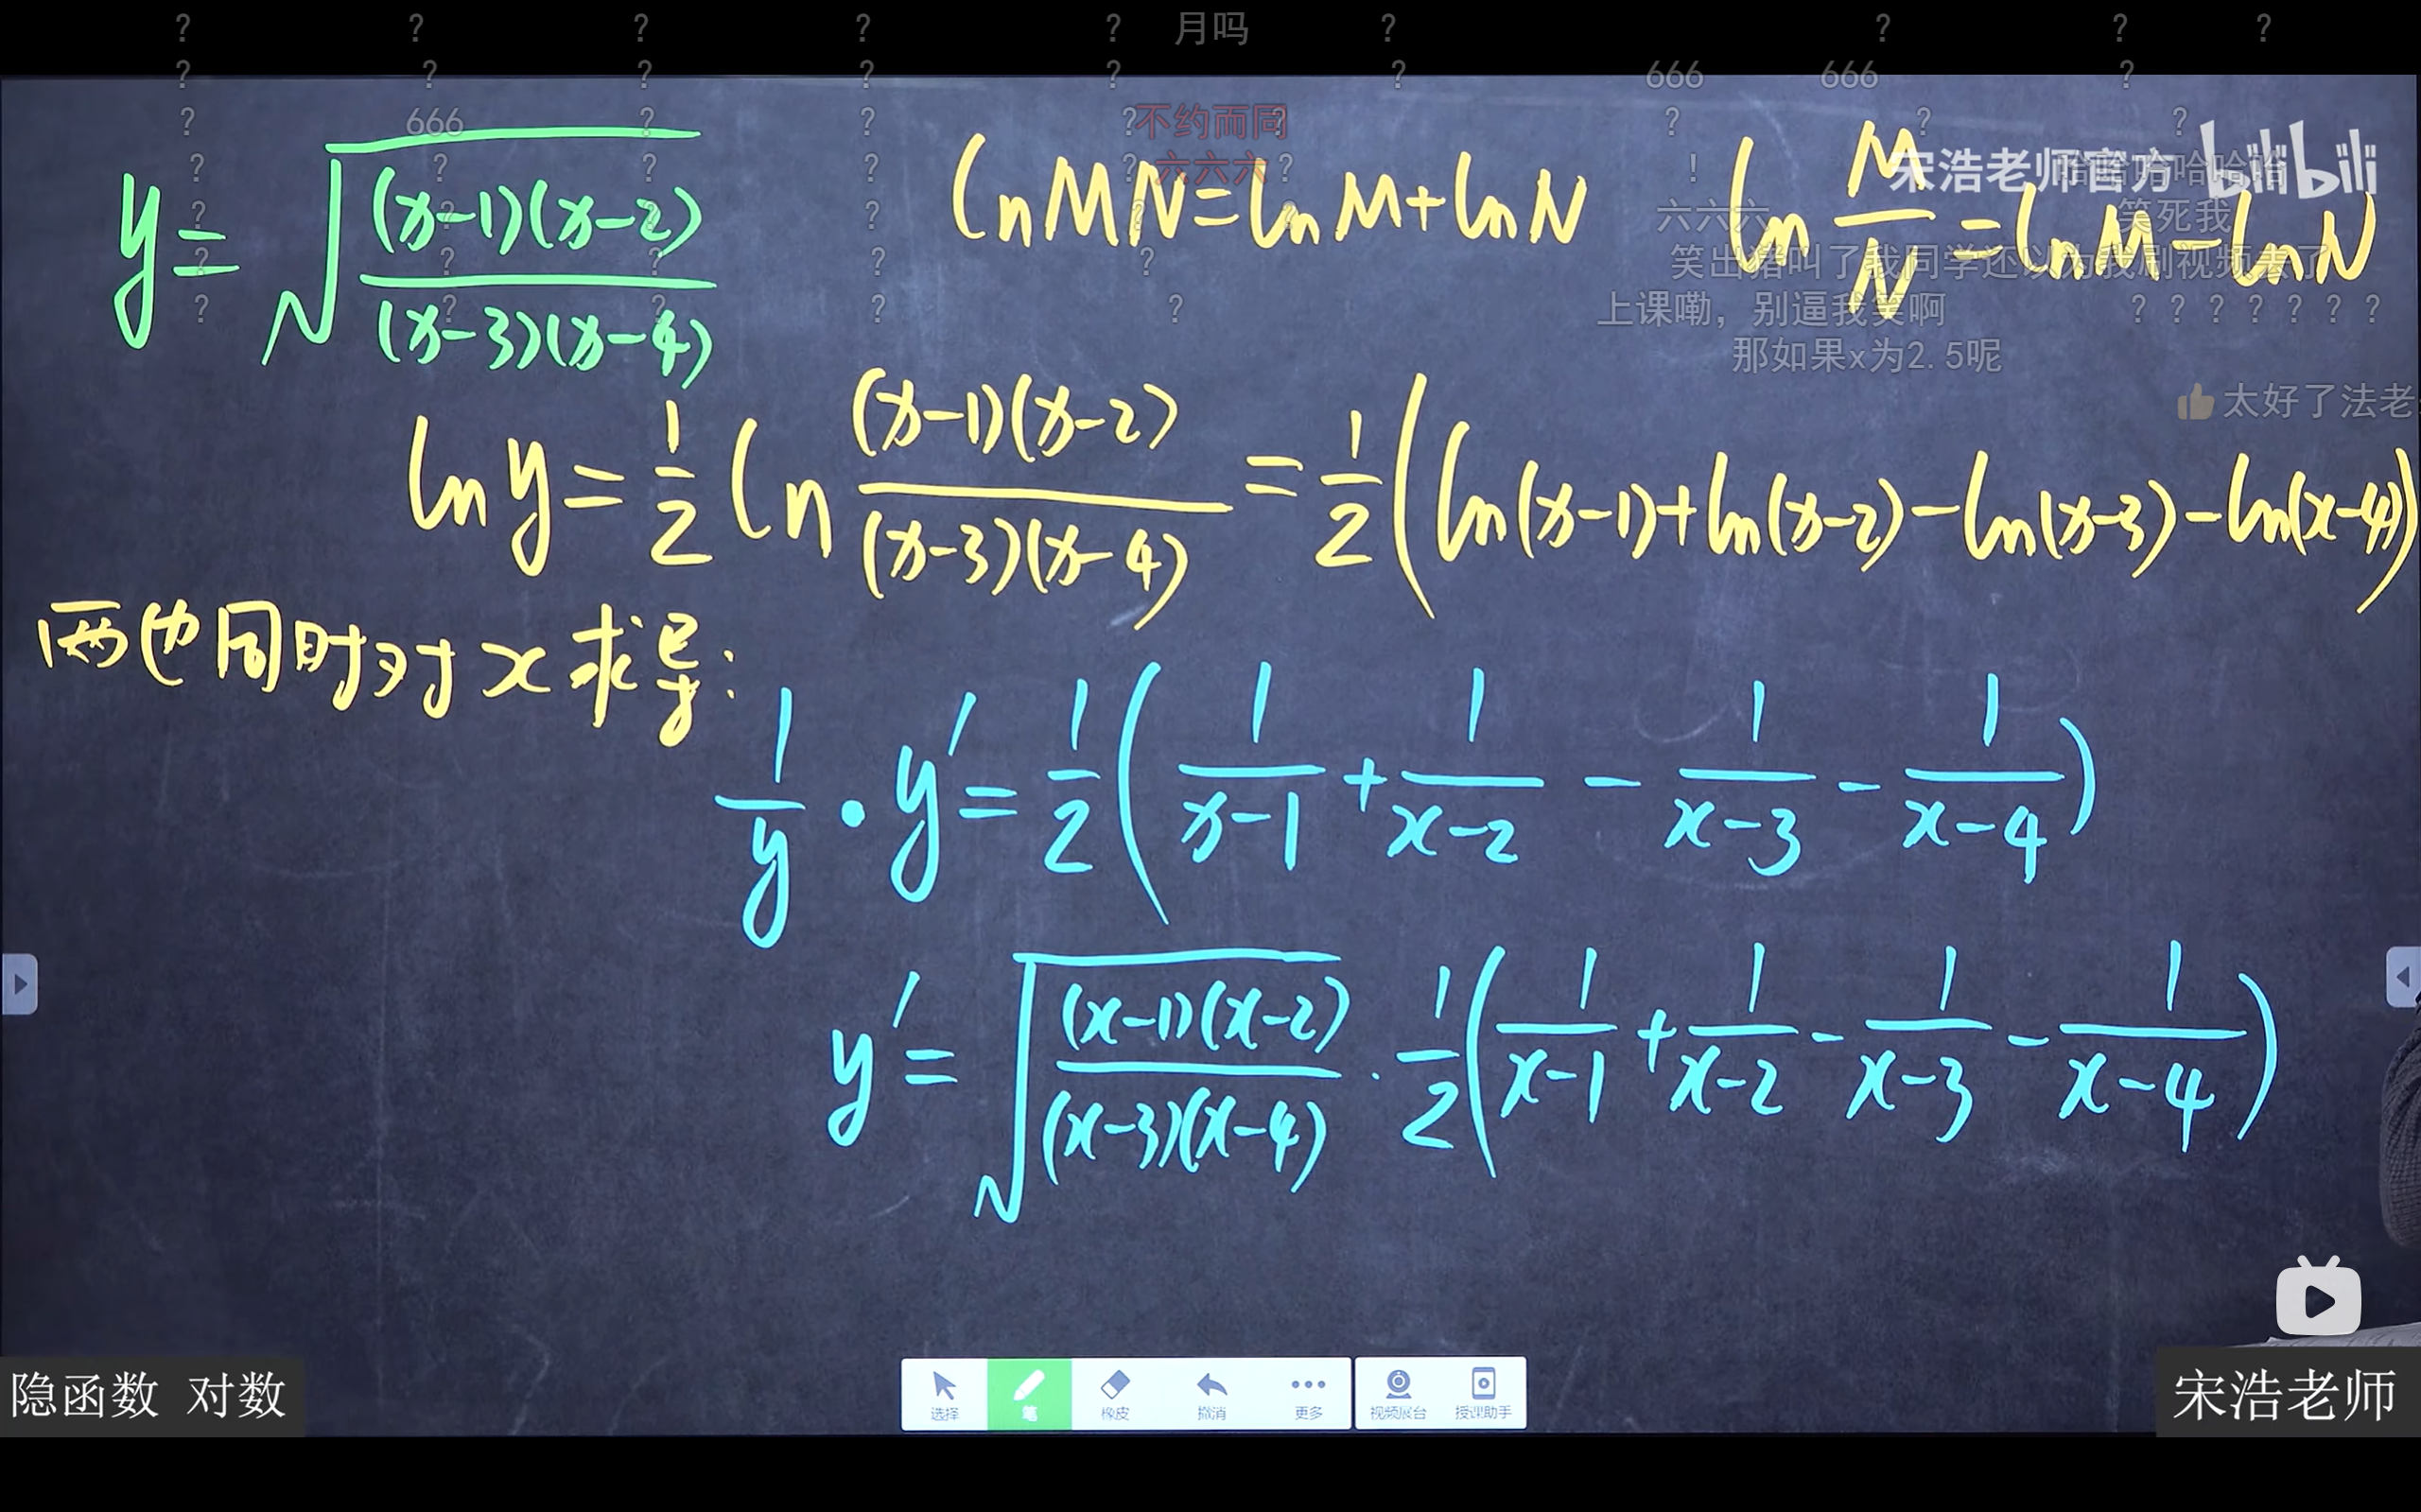 ? ? ? ? ? 月吗 ? ? ? ?
? ? ? ? ? ? 666 666 ?
? 666 ? ? ? 不约而同 ? ? ? ?
? ? ? ? ? 六六六 ? !
宋浩老师官方 bilibili
哈哈哈哈哈哈
六六六 笑死我
笑出猪叫了我同学还以为我刷视频去了
上课嘞，别逼我笑啊 ? ? ? ? ? ? ?
那如果x为2.5呢
太好了法老
y=√((x-1)(x-2)/(x-3)(x-4))
ln MN=ln M+ln N
ln M/N=ln M-ln N
ln y=1/2 ln (x-1)(x-2)/(x-3)(x-4) =1/2(ln(x-1)+ln(x-2)-ln(x-3)-ln(x-4))
两边同时对x求导:
1/y·y'=1/2(1/(x-1)+1/(x-2)-1/(x-3)-1/(x-4))
y'=√((x-1)(x-2)/(x-3)(x-4))·1/2(1/(x-1)+1/(x-2)-1/(x-3)-1/(x-4))
隐函数 对数
选择 笔 橡皮 撤消 更多 视频展台 授课助手
宋浩老师